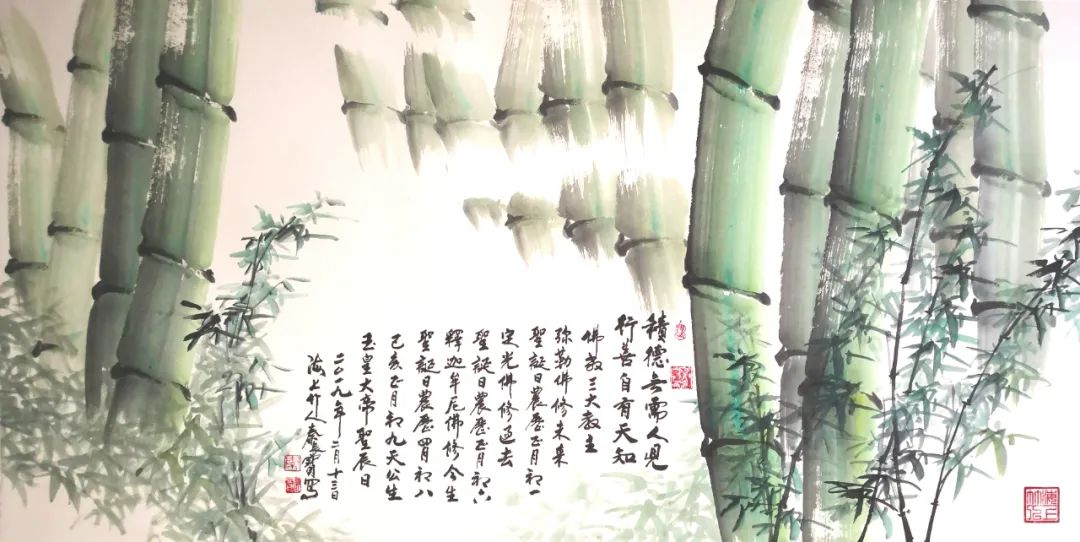 積德無需人見
行善自有天知
佛教三大教主
弥勒佛修未来
聖誕日農歷正月初一
定光佛修過去
聖誕日農歷正月初六
釋迦牟尼佛修今生
聖誕日農歷四月初八
己亥正月初九天公生
玉皇大帝聖辰日
二〇一九年二月十三日
海上竹人